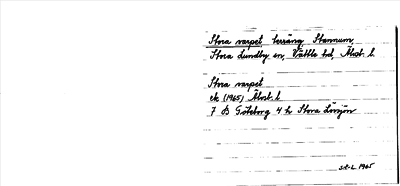 Stora varpet terräng Stannum,
Stora Lundby sn, Vättle hd, Älvsb. l.
Stora varpet
ek (1965) Älvsb. l
7 B Göteborg 4 h Stora Lövsjön
1965